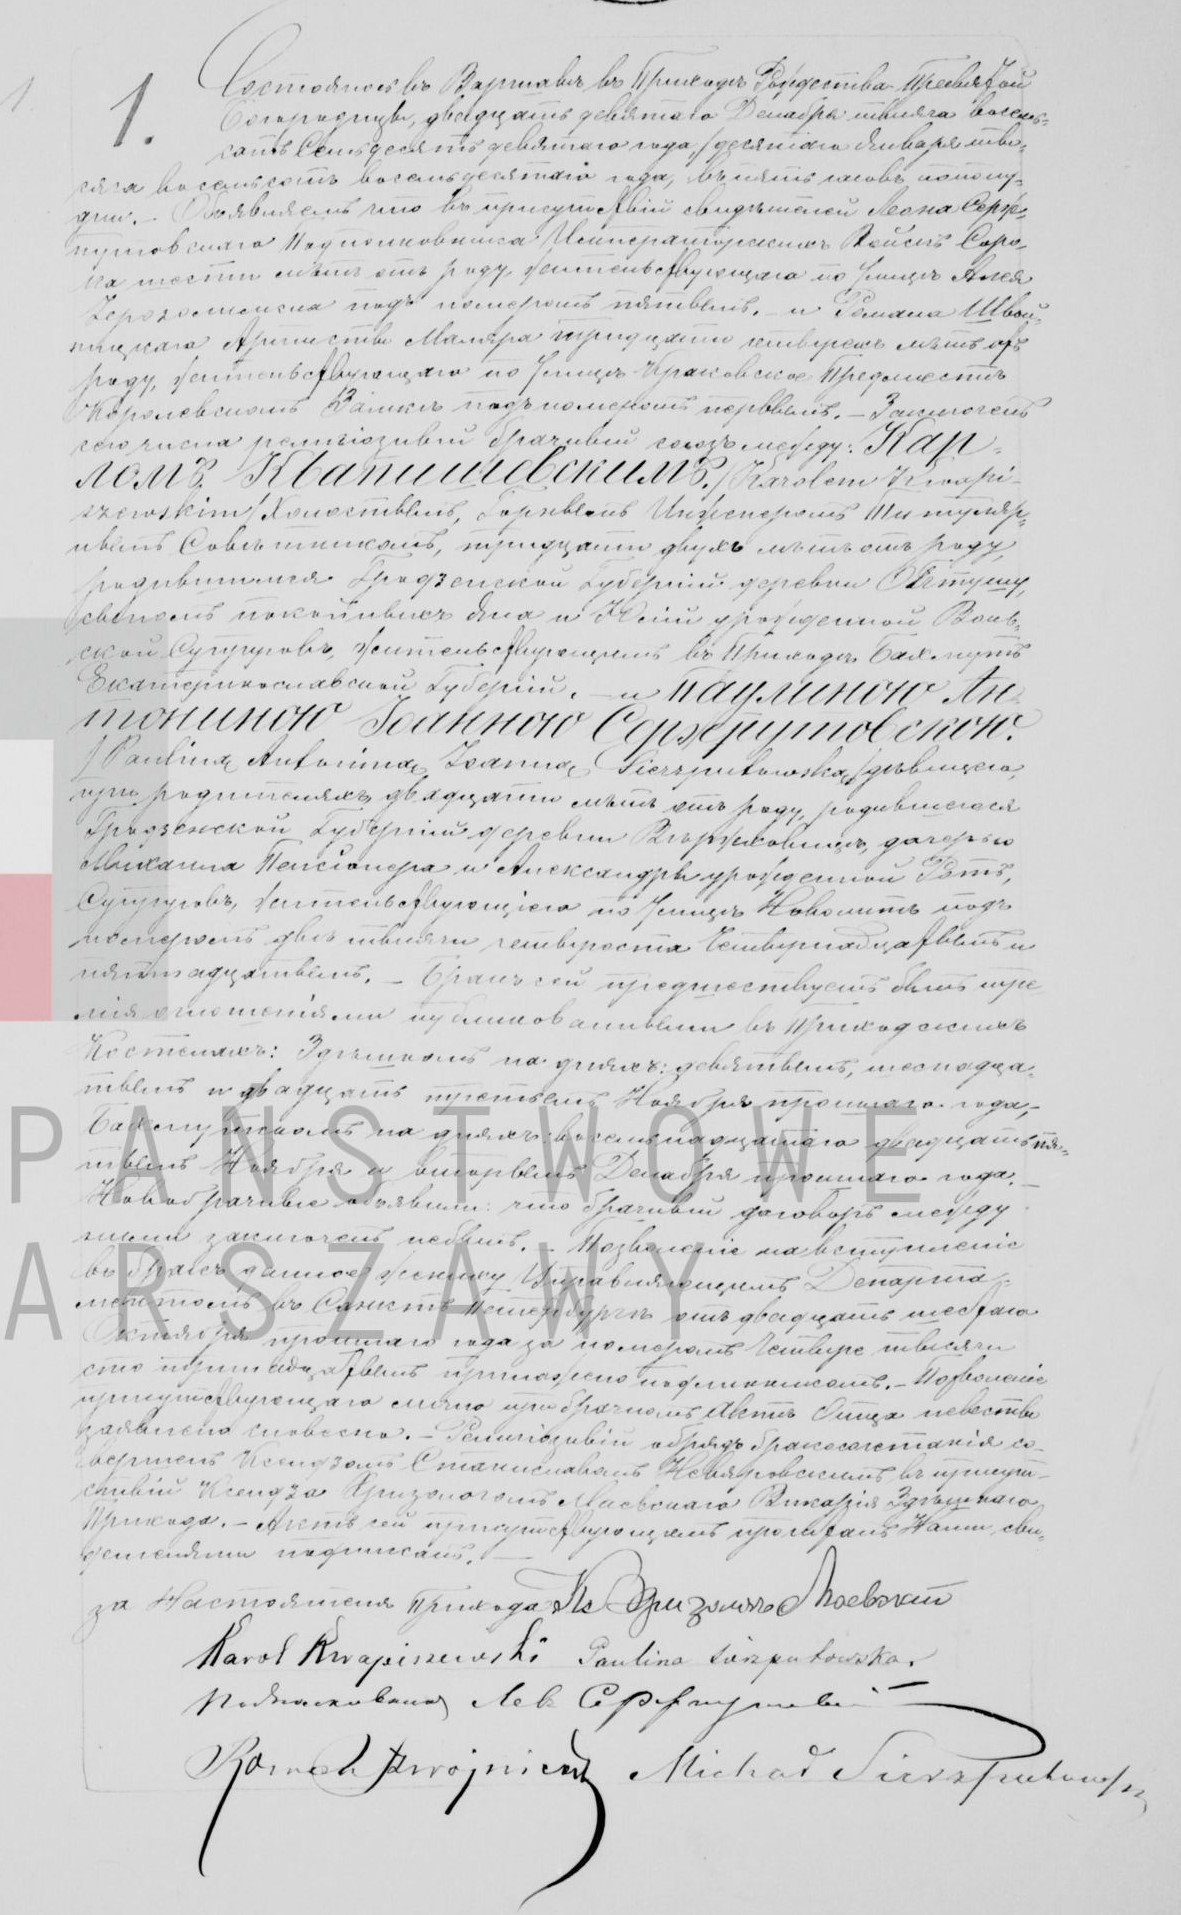 1
1.
Состоялось въ Варшавѣ въ Приходѣ Рождества Пресвятой
Богородицы, двадцать девятаго Декабря тысяча восемь-
сотъ Семьдесятъ девятаго года, /десятаго Января тыся-
сяча восемьсотъ восемьдесятаго года, въ пять часовъ пополу-
дни. – Объявляемъ что въ присутствіи свидѣтелей Леона Серж-
путовскаго Подполковника Императорскихъ Войскъ Соро-
ка шести лѣтъ отъ роду, жительствующаго по улицѣ Аллея
Іерозолимска подъ номеромъ пятымъ. – и Романа Швой-
ницкаго Артисты Маляра тридцати четырехъ лѣтъ отъ
роду, жительствующаго по улицѣ Краковское Предмѣстье
Королевскомъ Замкѣ подъ номеромъ первымъ. – Заключенъ
сего числа религіозный брачный союзъ между: Кар-
ломъ Квапишевскимъ. /Karolem Kwapi-
szewskim/ Холостымъ, Горнымъ Инженеромъ Титуляр-
нымъ Совѣтникомъ, тридцати двухъ лѣтъ отъ роду,
родившимся Гродзенской Губерніи деревни
сыномъ покойныхъ Яна и Юліи урожденной Воль-
ской Супруговъ, жительствующимъ въ Приходѣ Бахмутъ
Екатеринославской Губерніи. – и Паулиною Ан-
тониною Іоанною Сержпутовскою.
/Pauliną Antoniną Joanną Sierzputowską/ дѣвицею,
при родителяхъ, двадцати лѣтъ отъ роду, родившеюся
Гродзенской Губерніи деревни дочерью
Михаила Пенсіонера и Александры урожденной
Супруговъ, жительствующею по улицѣ Новолипѣ подъ
номеромъ двѣ тысячи четыреста Четырнадцатымъ и
пятнадцатымъ. – Бракъ сей предшествуемъ былъ тре-
мя оглашеніями публикованными въ Приходскихъ
Костелахъ: Здѣшномъ на дняхъ: девятымъ, шеснадца-
тымъ и двадцать третьемъ Ноября прошлаго года, –
Бахмутскомъ на дняхъ: восемьнадцатаго двадцать пя-
тымъ Ноября и вторымъ Декабря прошлаго года. –
Новобрачные объявили: что брачный договоръ между
ними заключенъ небылъ. – Позволеніе на вступленіе
въ бракъ данное Жениху Управляющимъ Департа-
ментомъ въ Санктъ Петербургѣ отъ двадцать шестаго
Октября прошлаго года за номеромъ Четыре тысячи
сто тринадцатымъ приложено подлинникомъ. – Позволеніе
присутствующаго лично при брачномъ Актѣ Отца невесты
заявлено словесно. – Религіозный обрядъ бракосочетанія со-
вершенъ Ксендзомъ Станиславомъ Невяровскимъ въ присут-
ствіи Ксендза Хризологомъ Маевскаго Викарія Здѣшняго
Прихода. – Актъ сей присутствующимъ прочитанъ Нами, сви-
детелями подписанъ. –
за Настоятеля Прихода Кс Хризологъ Маевскій
Karol Kwapiszewski Paulina Sierzputowska.
Подполковникъ Левъ Сержпутовскій
Roman Szwojnicki Michał Sierzputowski
PAŃSTWOWE
ARSZAWY